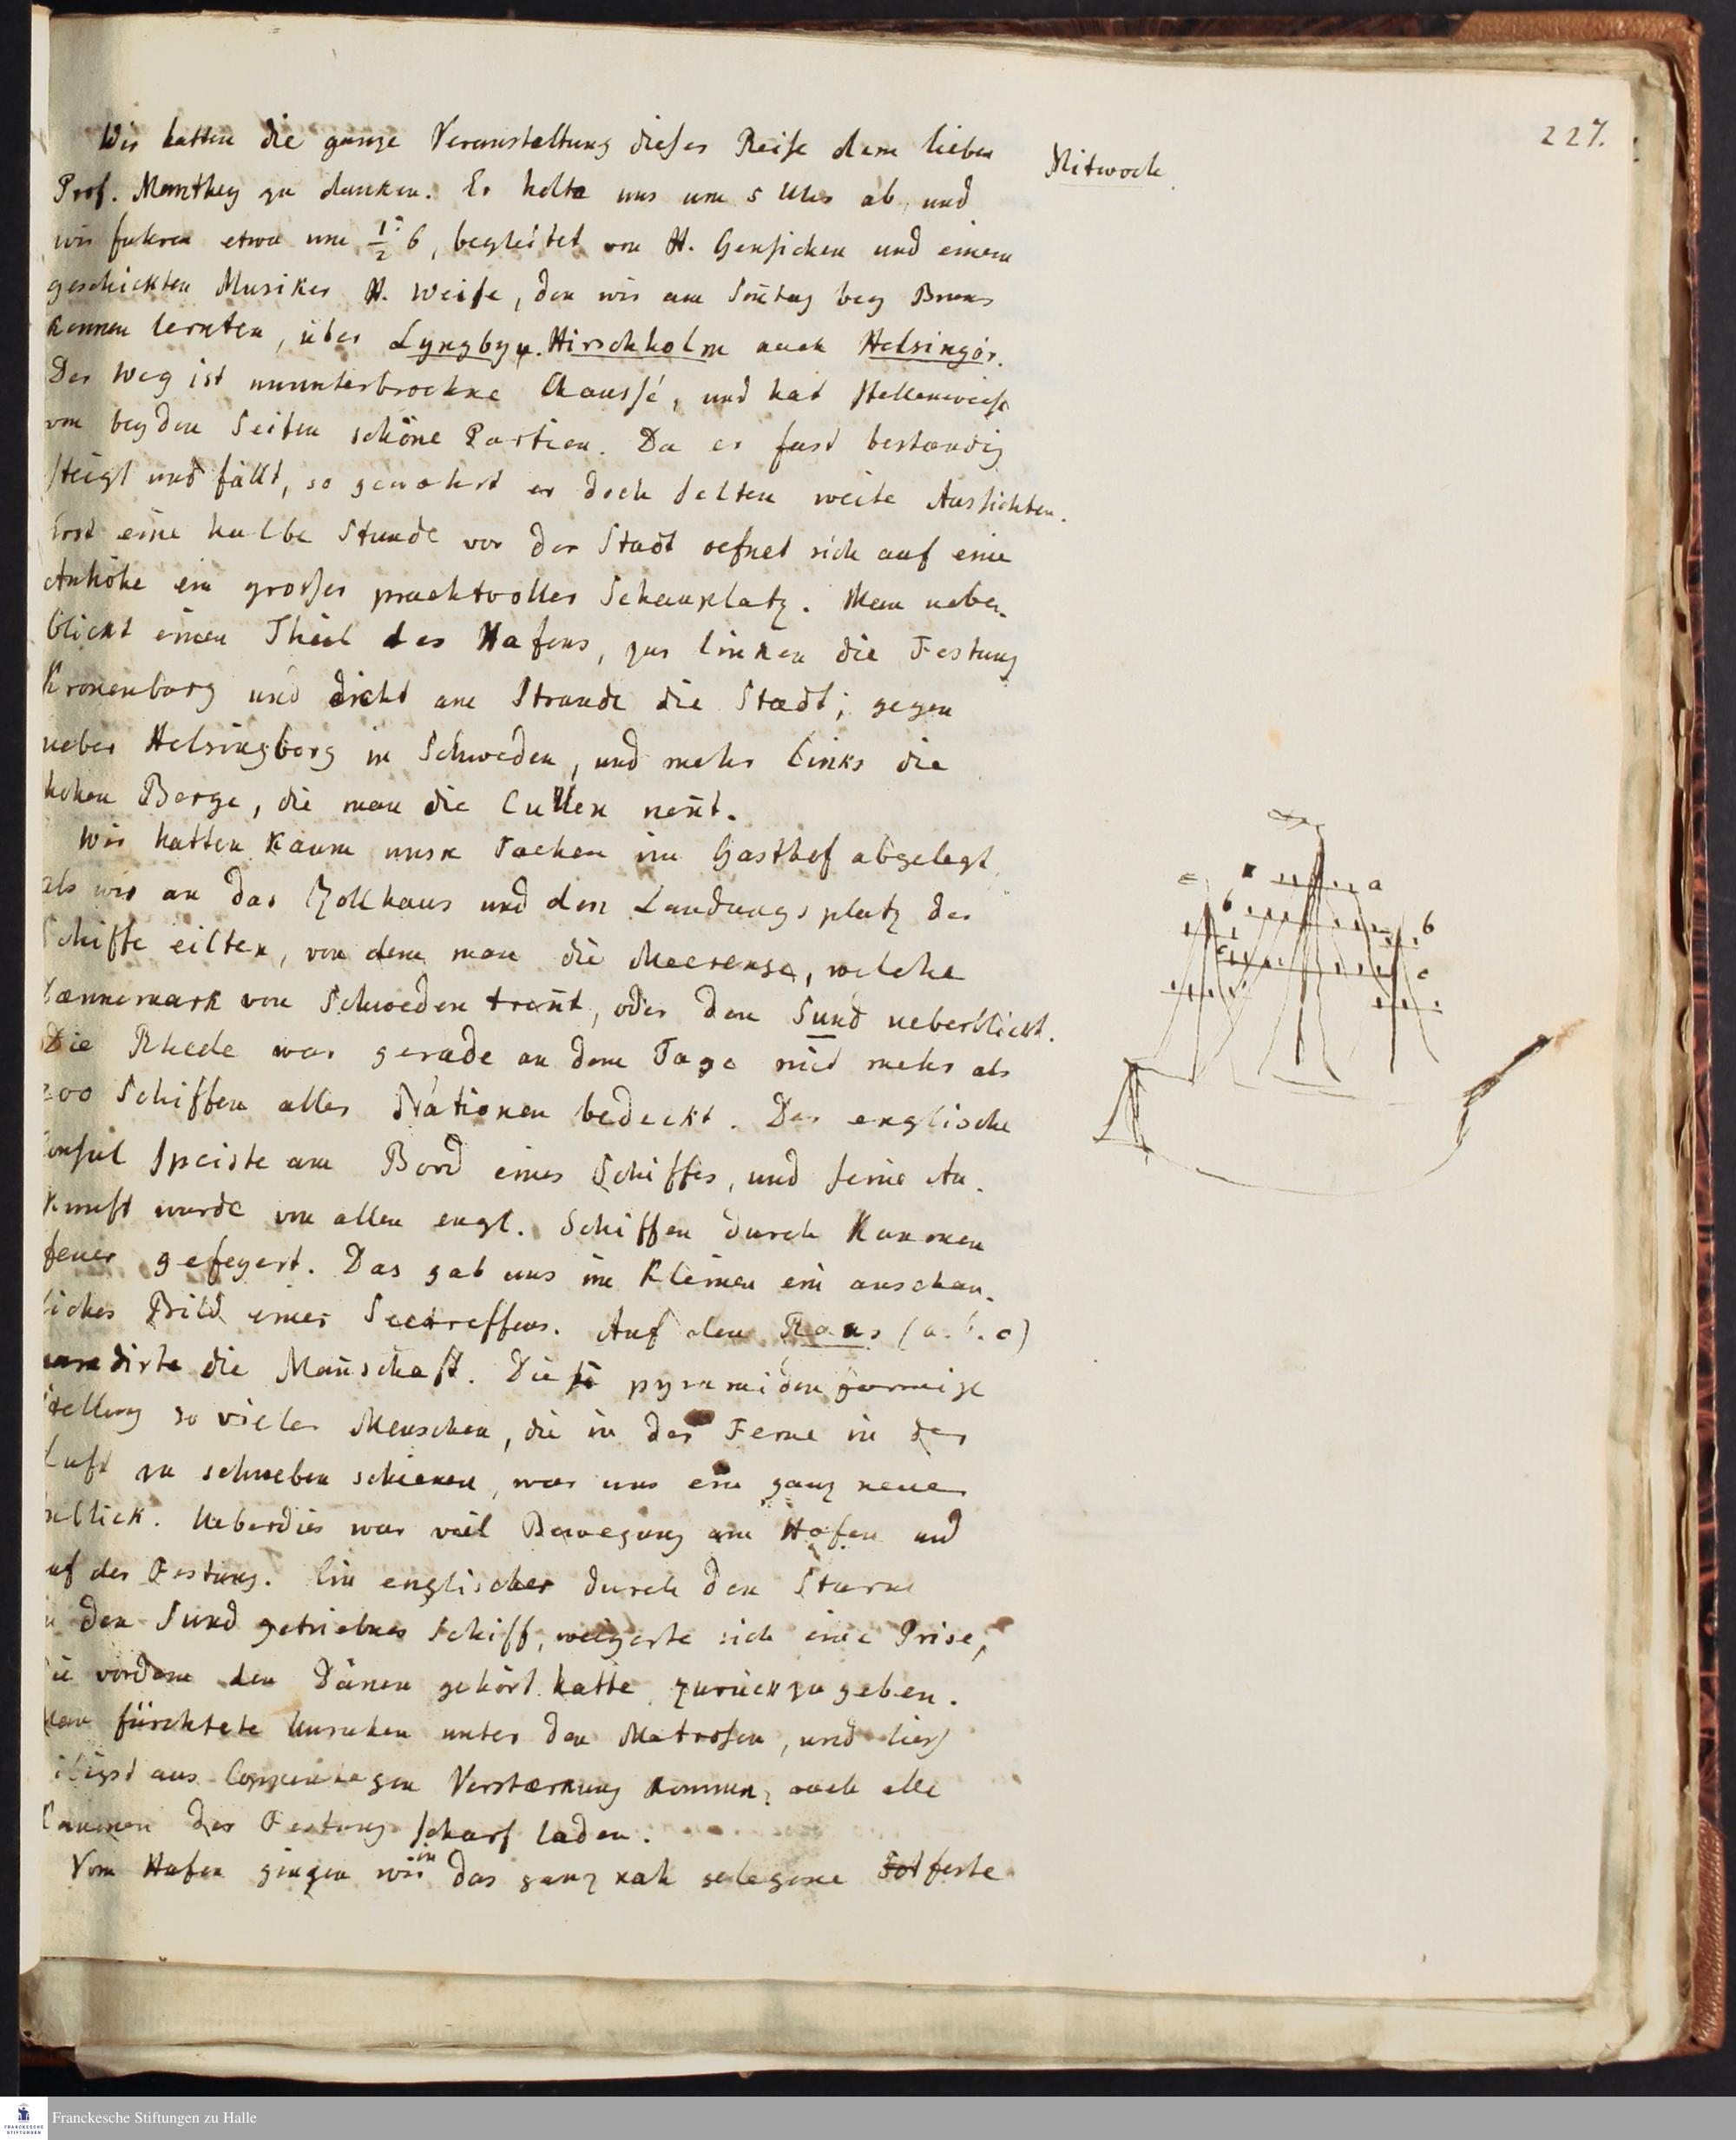 227.
Mitwoch
Wir hatten die ganze Veranstaltung dieser Reise dem lieben
Prof. Manthey zu danken. Er holte uns um 5 Uhr ab, und
wir fuhren etwa um ½ 6, begleitet von H. Gensichen und einem
geschickten Musiker H. Weise, den wir am Son̄tag bey Bruns
kennen lernten, über Lyngby u. Hirschholm nach Helsingör.
Der Weg ist ununterbrochne Chaussé, und hat stellenweise
von beyden Seiten schöne Partien. Da er fast bestændig
steigt und fällt, so gewæhrt er doch selten weite Aussichten.
Erst eine halbe Stunde vor der Stadt oefnet sich auf eine
Anhöhe ein grosser prachtvoller Schauplatz. Man ueber-
blickt einen Theil des Hafens, zur linken die Festung
Kronenborg und dicht am Strande die Stadt; gegen
ueber Helsingborg in Schweden, und mehr links die
hohen Berge, die man die Cullen nen̄t.
Wir hatten kaum unsre Sachen im Gasthof abgelegt,
als wir an das Zollhaus und den Landungsplatz der
Schiffe eilten, von dem man die Meerenge, welche
Dænnemark von Schweden tren̄t, oder den Sund ueberblickt.
Die Rhede war gerade an dem Tage mit mehr als
200 Schiffen aller Nationen bedeckt. Der englische
Consul speiste am Bord eines Schiffes, und seine An-
kunft wurde von allen engl. Schiffen durch Kannonen
feuer gefeyert. Das gab uns im Kleinen ein anschau-
liches Bild eines Seetreffens. Auf den Raas (a. b. c)
paradirte die Man̄schaft. Diese pyramidenförmige
Stellung so vieler Menschen, die in der Ferne in der
Luft zu schweben schienen, war uns ein ganz neuer
Anblick. Ueberdies war viel Bewegung am Hafen und
auf der Festung. Ein englisches durch den Sturm
in den Sund getriebnes Schiff, weigerte sich eine Prise,
die vordem den Dänen gehört hatte, zurückzugeben.
Man fürchtete Unruhen unter den Matrosen, und liess
eiligst aus Coppenhagen Verstærkung kommen, auch alle
Canonen der Festung scharf laden.
Vom Hafen gingen wir in das ganz nah gelegene feste
a
b b
c c